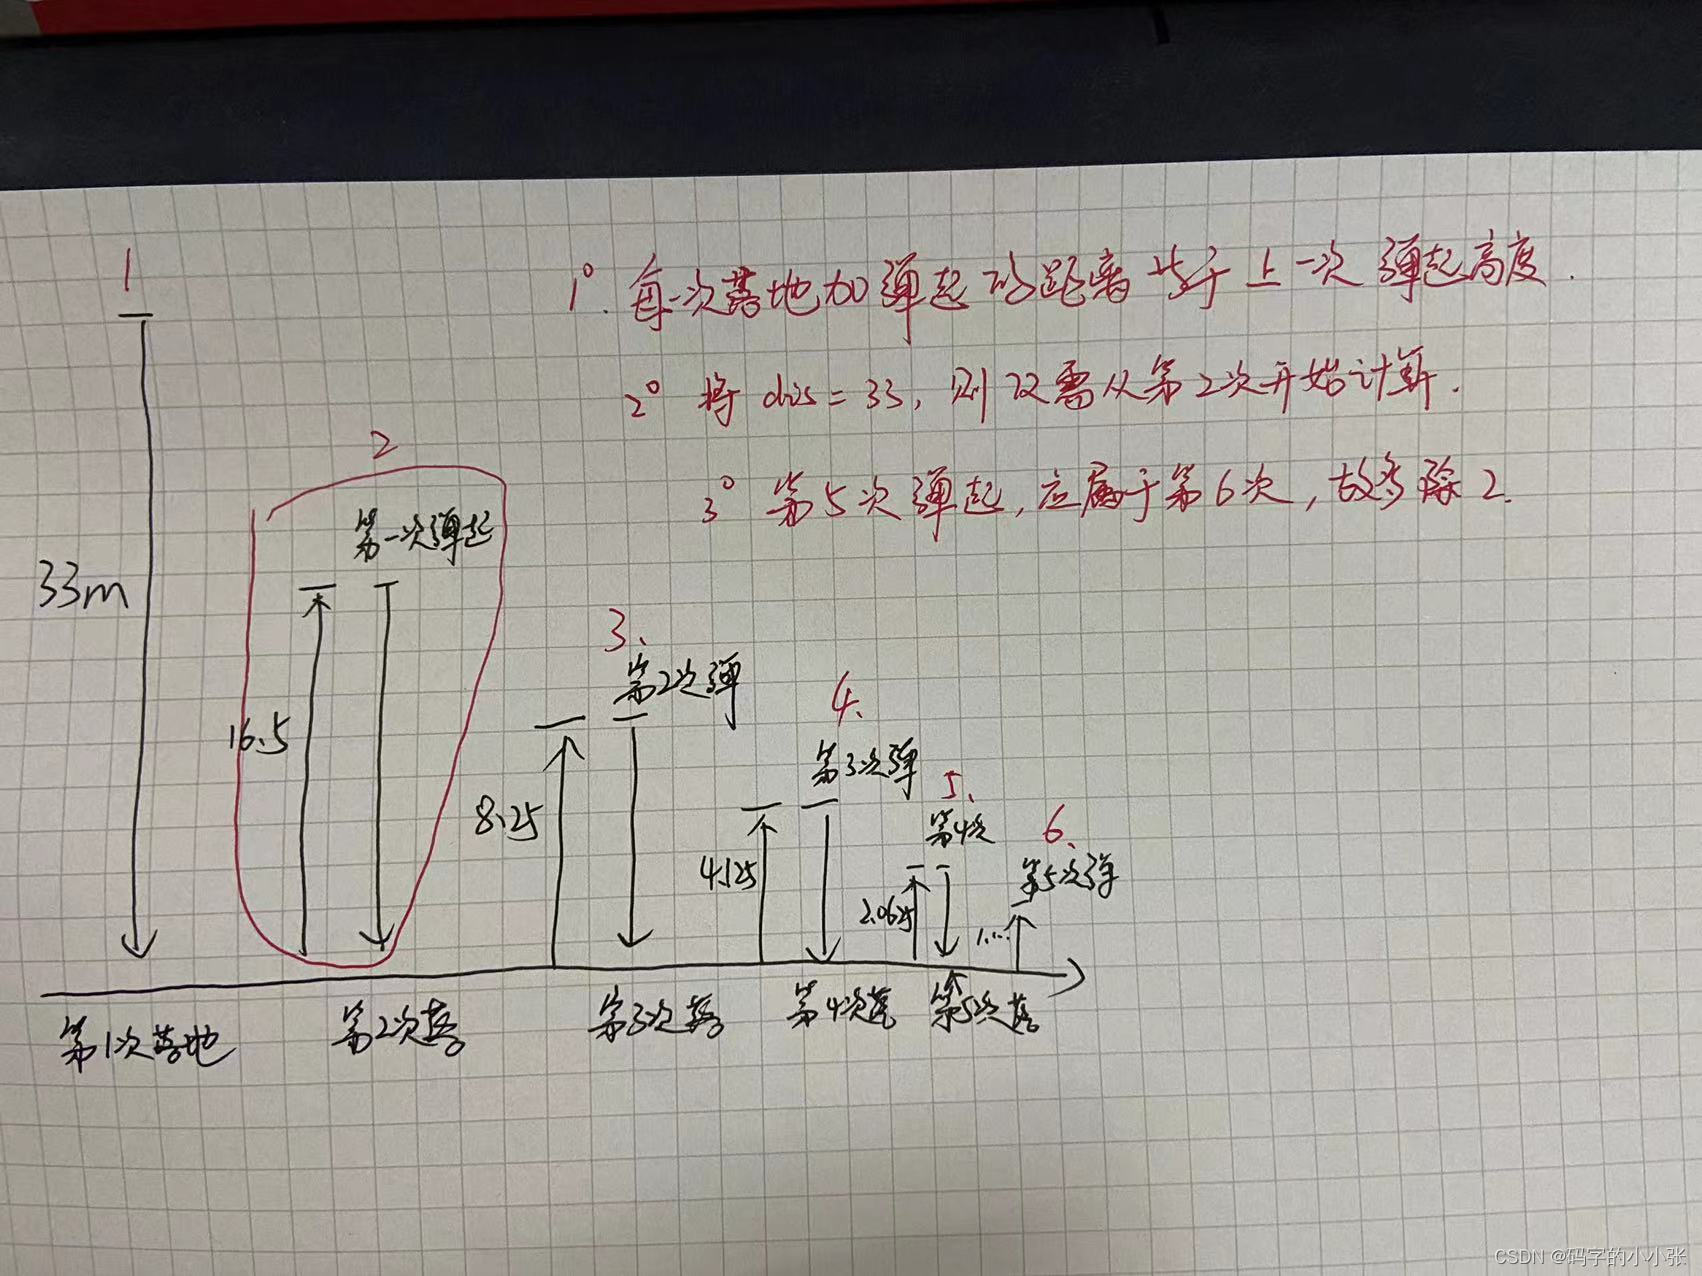 1
1° 每一次落地加弹起的距离 等于 上一次 弹起高度.
2° 将 dis = 33, 则 仅需从第2次开始计算.
3° 第5次弹起, 应属于第6次, 故多除2.
2
第一次弹起
33m
16.5
3、
第2次弹
8.25
4、
第3次弹
4.125
5、
第4次
2.0625
6、
第5次弹
1....
第1次落地
第2次落
第3次落
第4次落
第5次落
CSDN @码字的小小张